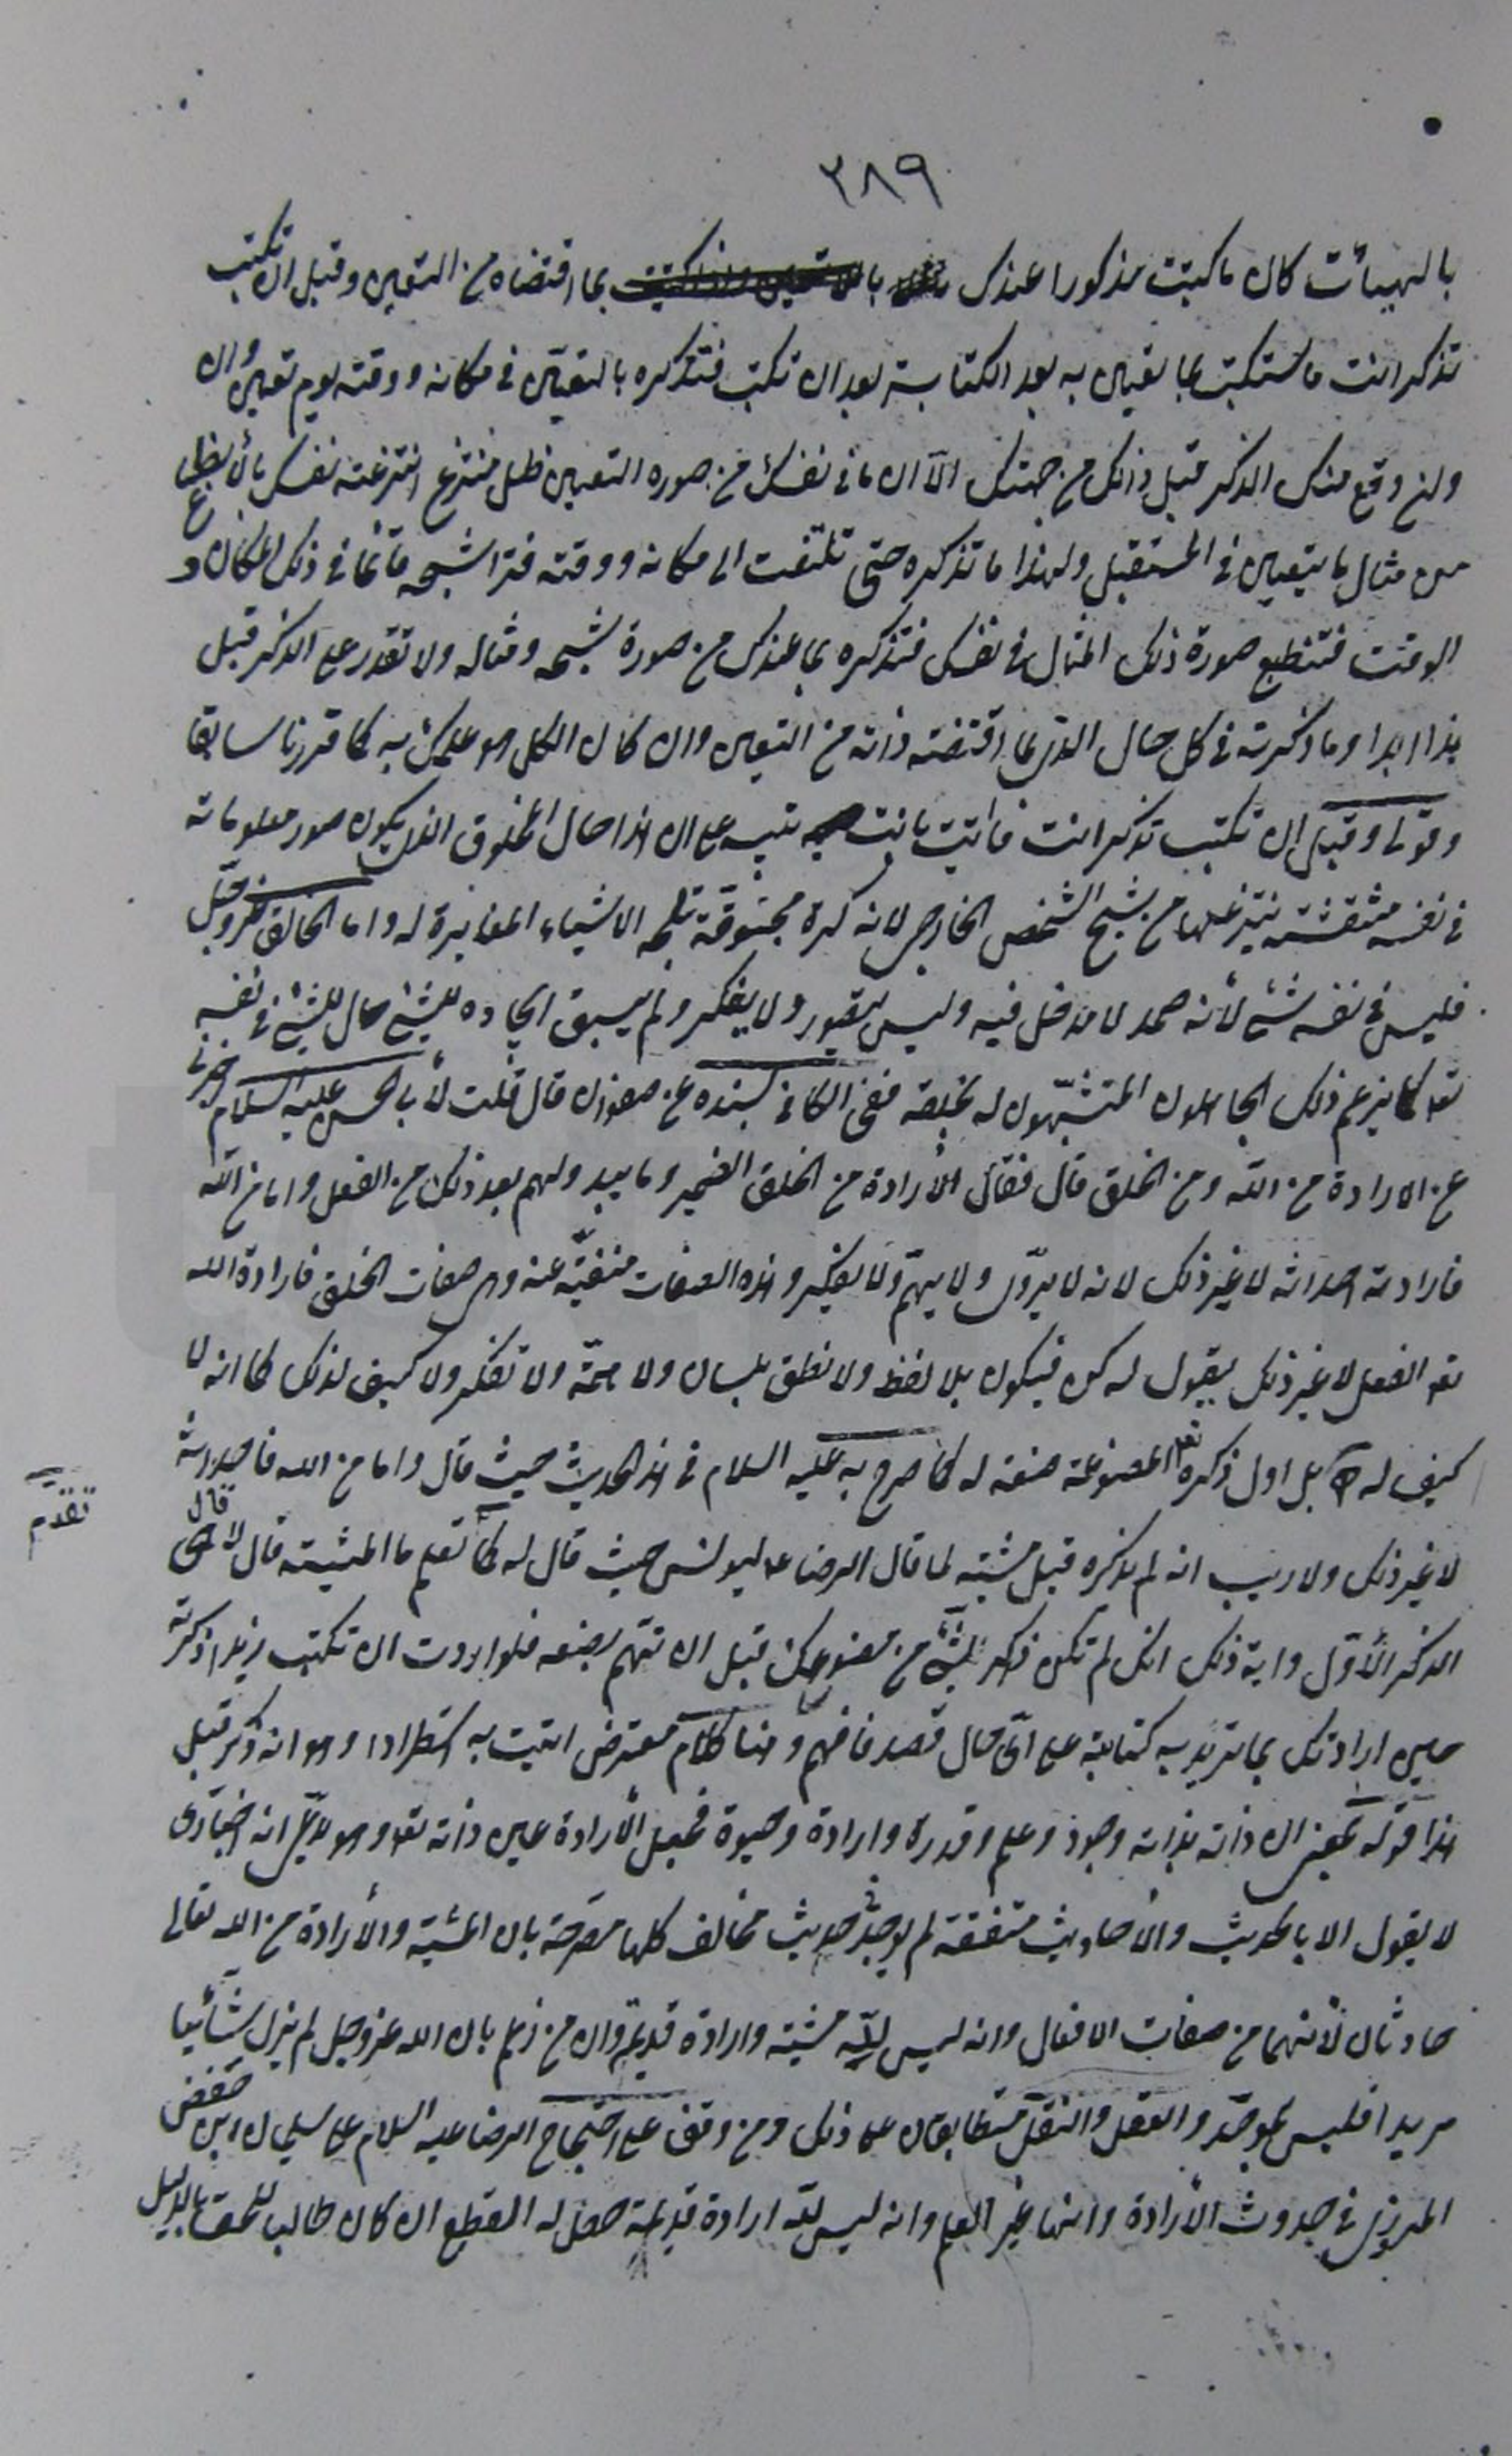 ٣٨٩
بالهيئات كان ما كتبت مذكورا عندك بما اقتضاه من التعين وقبل ان تكتب
تذكر انت ما ستكتب بما يتعين به بعد الكتابة بعد ان تكتب فتذكره بالتعين في مكانه ووقته يوم تعين وان
وقع منك الذكر قبل ذلك من جهتك الا ان ما في نفسك من صورة التعين ظل منتزع انتزعته نفسك بان ينطبع
من مثال ما يتعين في المستقبل ولهذا ما تذكره حتى تلتفت الى مكانه ووقته فترا شبحه قائما في ذلك المكان و
الوقت فتنطبع صورة ذلك المثال في نفسك فتذكره بما عندك من صورة شبحه ومثاله ولا تقدر على الذكر قبل
هذا ابدا وما ذكرته في كل حال الذي بما اقتضته ذاته من التعين وان كان الكل هو علمك به كما قررنا سابقا
وقولي وقبل ان تكتب تذكر انت فاتيت بانت تنبيه على ان هذا حال المخلوق الذي يكون صور معلوماته
في نفسه منتقشة ينتزعها من شبح الشخص الخارجي لانه كرة مجوفة تلجه الاشياء المغايرة له واما الخالق عز وجل
فليس في نفسه شئ لأنه صمد لا مدخل فيه وليس يتصور ولا يفكر ولم يسبق ايجاده للشئ حال للشئ في نفسه
تعه كما يزعم ذلك الجاهلون المتشبهون له بخلقه ففي الكافي بسنده عن صفوان قال قلت لأبي الحسن عليه السلام اخبرني
عن الارادة من الله ومن الخلق قال فقال الأرادة من الخلق الضمير وما يبدو لهم بعد ذلك من الفعل واما من الله
فارادته احداثه لا غير ذلك لانه لا يروّي ولا يهمّ ولا يفكر وهذه الصفات منفيّة عنه وهي صفات الخلق فارادة الله
تعه الفعل لا غير ذلك يقول له كن فيكون بلا لفظ ولا نطق بلسان ولا همّة ولا تفكر ولا كيف لذلك كما انه لا
كيف له بل اول ذكره تعه المصنوعة صنعه له كما صرح به عليه السلام في هذا الحديث حيث قال واما من الله فاحداثه
لا غير ذلك ولا ريب انه لم يذكره قبل مشيته لما قال الرضا ع ليونس حيث قال له كما تقدم تعلم ما المشيته قال لا قال هي
الذكر الأوّل واية ذلك انك لم تكن ذاكر الشئ من مصنوعك قبل ان تهم بصنعه فلو اردت ان تكتب زيدا ذكرته
حين ارادتك بما تريد به كتابته على اي حال قصد فافهم وهنا كلام معترض اتيت به استطرادا وهو انه ذكر قبل
هذا قوله بمعنى ان ذاته بذاته وجود وعلم وقدرة وارادة وحيوة فجعل الأرادة عين ذاته تعه وهو يدّعي انه اخباري
لا يقول الا بالحديث والأحاديث متفقة لم يوجد حديث مخالف كلها مصرحة بان المشية والأرادة من الله تعالى
حادثان لأنهما من صفات الافعال وانه ليس للّه مشية وارادة قديمة وان من زعم بان الله عز وجل لم يزل شائيا
مريدا فليس بموحّد والعقل والنقل متطابقان على ذلك ومن وقف على احتجاج الرضا عليه السلام على سليمان ابن حفص
المروزي في حدوث الأرادة وانها غير العلم وانه ليس للّه ارادة قديمة حصل له القطع ان كان طالب للحق بالدليل